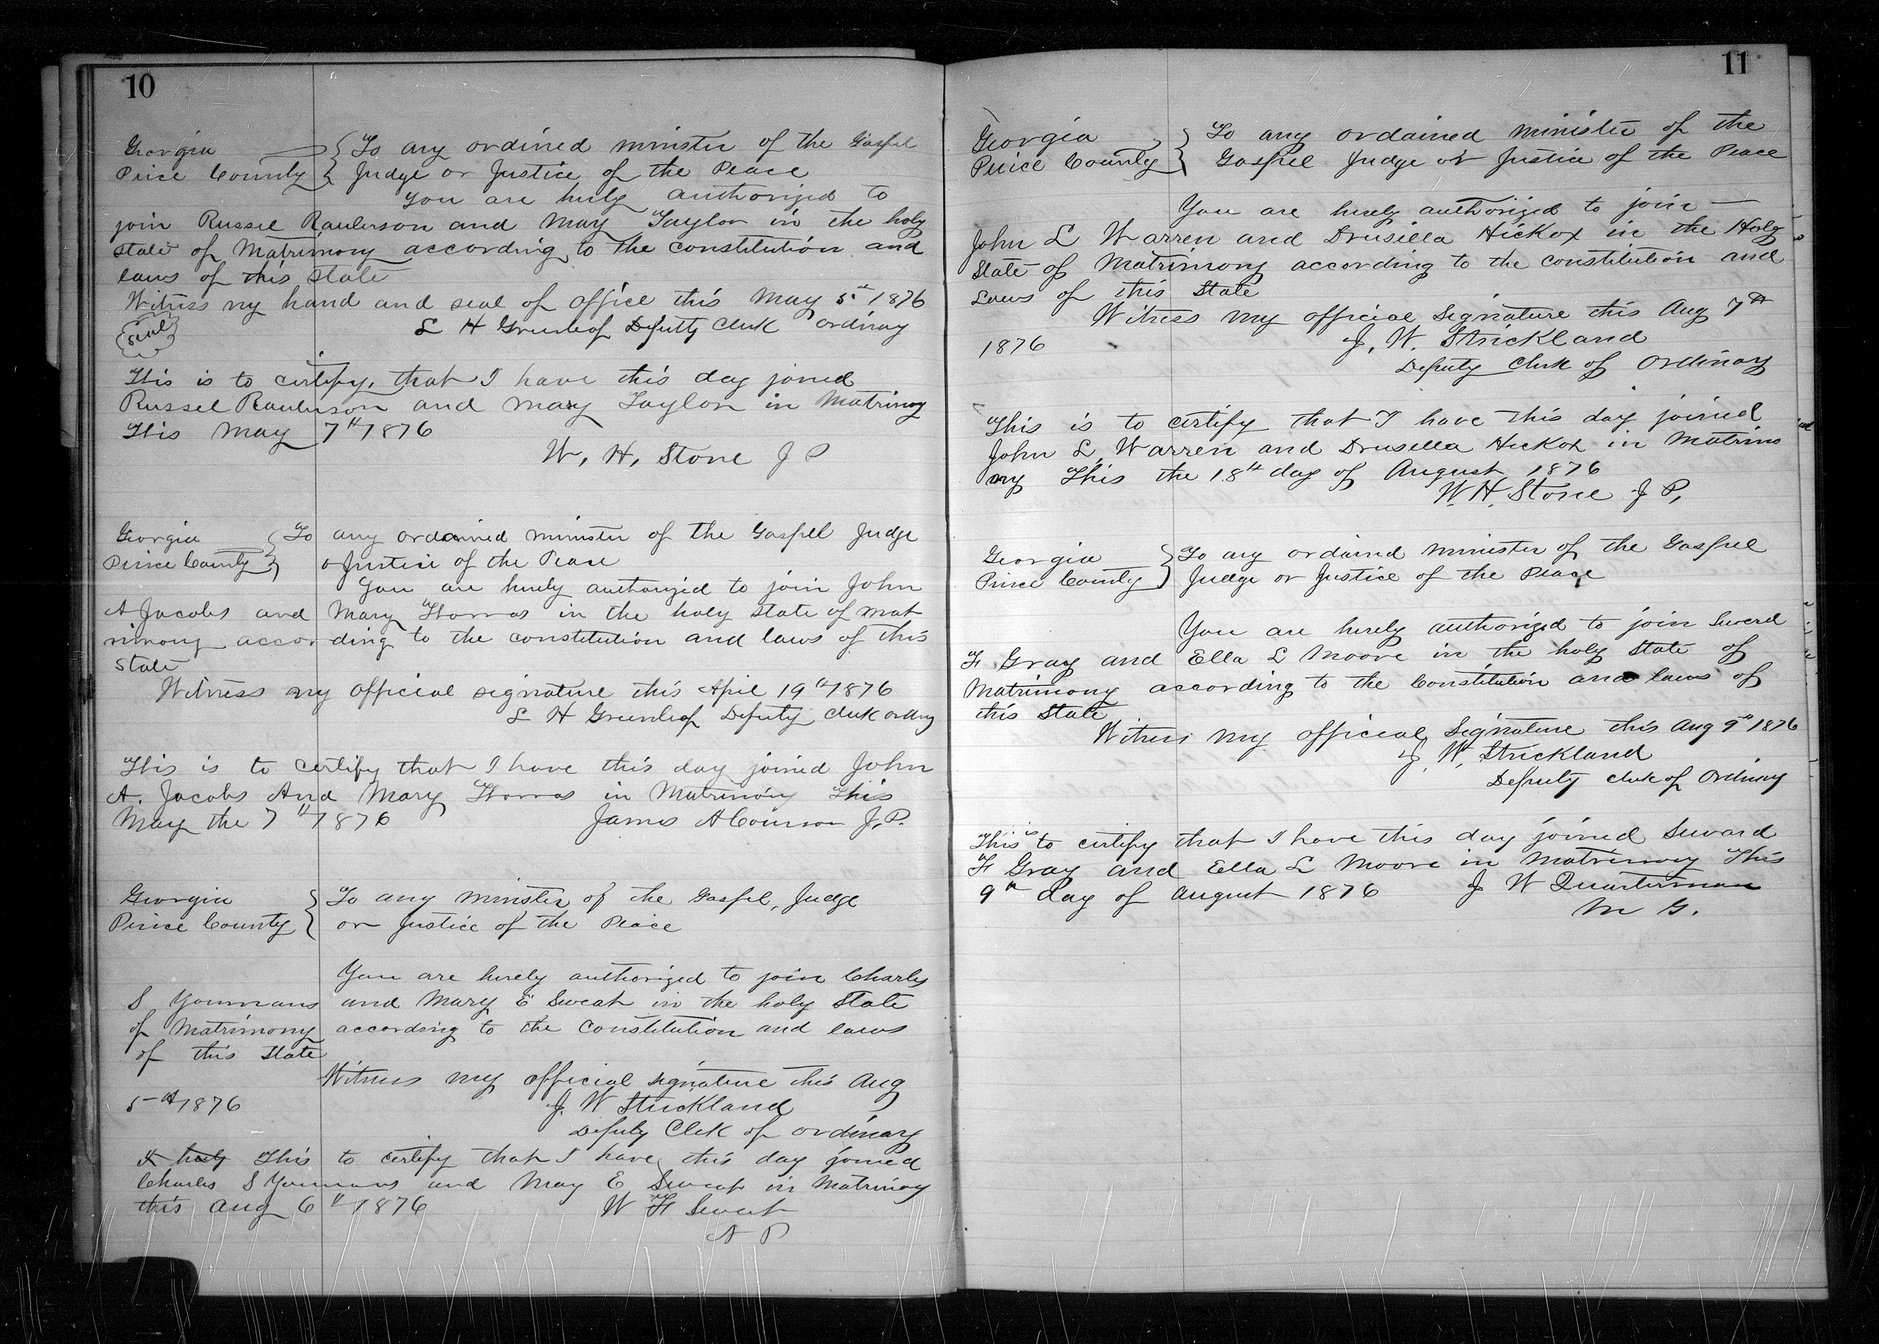 10
Georgia
Peirce County
To any ordined minister of the Gospel
Judge or Justice of the Peace
You are herby authorized to
join Russel Raulerson and Mary Taylor in the holy
state of Matrimony according to the constitution and
laws of this state
Witness my hand and seal of office this May 5th 1876
seal
L H Greenleaf Deputy Clerk ordinay
This is to certify, that I have this day joined
Russel Raulerson and Mary Taylor in Matrimoy
This May 7th 1876
W, H, Stone J P
Georgia
Peirce County
To any ordained minister of the Gospel Judge
or Justice of the Peace
You are herely authorized to join John
A Jacobs and Mary Thomas in the holy state of mat
rimony according to the constitution and laws of this
State
Witness my official signature this April 19th 1876
L H Greenleaf Deputy Clerk ordiny
This is to certify that I have this day joined John
A. Jacobs And Mary Thomas in Matrimony This
May the 7th 1876 James A J, P.
Georgia
Peirce County
To any minister of the Gospel, Judge
or Justice of the Peace
You are herely authorized to join Charles
S Youmans and Mary E Sweat in the holy State
of Matrimony according to the constitution and laws
of this State
Witness my official signature this Aug
5th 1876
J. W Strickland
Deputy Clek of ordinary
This to certify that I have this day joined
Charles S Youmans and May E Sweat in Matrimoy
this Aug 6th 1876 W F Sweat
N P
11
Georgia
Peirce County
To any ordained minister of the
Gospel Judge or Justice of the Peace
You are herely authorized to join
John L Warren and Drusilla Hickox in the Holy
State of Matrimony according to the constitution and
Laws of this State
Witness my official Signature this Aug 7th
1876
J, W. Strickland
Deputy Clerk of Ordinary
This is to certify that I have this day joined
John L Warren and Drusella Hickox in Matrimo
ny This the 18th day of August 1876
W. H. Stone J P,
Georgia
Peirce County
To any ordained minister of the Gospel
Judge or Justice of the Peace
You are herely authorized to join Seward
F Gray and Ella L Moore in the holy State of
Matrimony according to the Constitution and laws of
this State
Witness my official Signature this Aug 9th 1876
J. W. Strickland
Deputy Clerk of Ordinay
This is to certify that I have this day joined Seward
F Gray and Ella L Moore in Matrimony This
9th day of August 1876 J W Quarterman
M G.